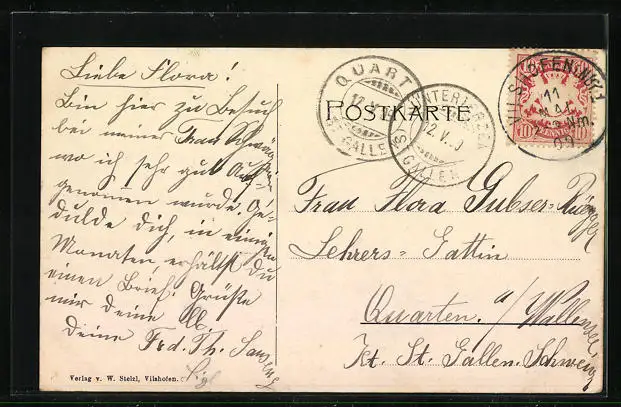 Liebe Flora!
Bin hier zu Besuch
bei meiner Frau
wo ich sehr gut Auf-
genommen wurde. Ge-
dulde dich, in einigen
Monaten, erhältst du
einen Brief. Grüße
mir deine
deine Frd. Th.
Verlag v. W. Stelzl, Vilshofen.
QUART
12.V
ST. GALLEN
POSTKARTE
UNTERTERZEN
12.V.
(ST. GALLEN)
VILSHOFEN No 1
11
MAI
09
10 PFENNIG 10
Frau Flora Gubser-
Lehrers-Gattin
Quarten. a/ Wallensee
Kt. St. Gallen. Schweiz